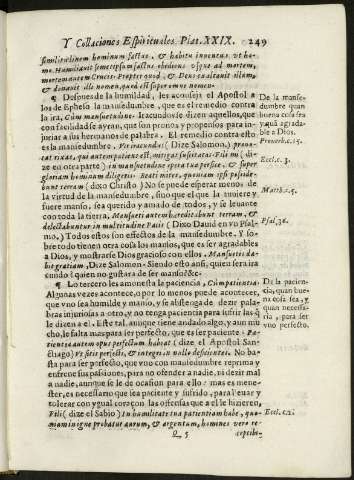 Y Collaciones Espirituales Plat. XXIX. 249
similitudinem hominum factus, & habitu inuentus vt ho-
mo. Humiliauit semetipsum factus obediens vsque ad mortem,
mortem autem Crucis. Propter quod, & Deus exaltauit illum,
& donauit illi nomen, quod est super omne nomen.
¶ Despues de la humildad, les aconseja el Apostol a
los de Epheso la mansedumbre, que es el remedio contra
la ira, Cum mansuetudine. Iracundos se dizen aquellos, que
con facilidad se ayran, que son promos y propensos para in-
juriar a sus hermanos de palabra. El remedio contra esto
es la mansedumbre. Vir iracundus (Dize Salomon) prouo-
cat rixas, qui autem patiens est, mitigat suscitatas. Fili mi (di-
ze en otra parte) in mansuetudine opera tua perfice, & super
gloriam hominum diligeris. Beati mites, quoniam ipsi posside-
bunt terram (dixo Christo) No se puede esperar menos de
la virtud de la mansedumbre, sino que el que la tuuiere y
fuere manso, sea querido y amado de todos, y se leuante
con toda la tierra. Mansueti autem hæreditabunt terram, &
delectabuntur in multitudine Pacis (Dixo Dauid en vn Psal-
mo.) Todos estos son effectos de la mansedumbre. Y so-
bre todo tienen otra cosa los mansos, que es ser agradables
a Dios, y mostrarse Dios gracioso con ellos. Mansuetis da-
bit gratiam, Dize Salomon. Siendo esto ansi, quien sera ira
cundo? quien no gustara de ser manso? &c.
¶ Lo tercero les amonesta la paciencia; Cum patientia.
Algunas vezes acontece, o por lo menos puede acontecer,
que vno sea humilde y manso, y se abstenga de dezir pala-
bras injuriosas a otro, y no tenga paciencia para sufrir las q̃
le dizen a el. Este tal, aunque tiene andado algo, y aun mu
cho, le falta mas para ser perfecto, que es ser paciente. Pa-
tientia autem opus perfectum habeat (dize el Apostol San-
ctiago) Vt sitis perfecti, & integri in nullo deficientes. No bas-
ta para ser perfecto, que vno con mansedumbre reprima y
enfrene sus passiones, para no ofender a nadie, ni dezir mal
a nadie, aunque se le de ocasion para ello: mas es mene-
ster, es necessario que sea paciente y sufrido, para lleuar y
tolerar con ygual coraçon las offensas que a el le hizieren,
Fili (dize el Sabio) In humilitate tua patientiam habe, quo-
niam in igne probatur aurum, & argentum, homines vero re-
Q 5 ceptibi-
De la manse-
dumbre quan
buena cosa sea
y quã agrada-
ble a Dios.
Prouerb. c. 15.
Eccli. c. 3.
Matth. c. 5.
Psal. 36.
De la pacien-
cia, quan bue-
na cosa sea, y
quan necessa-
ria, para ser
vno perfecto.
Eccl. c. 2.